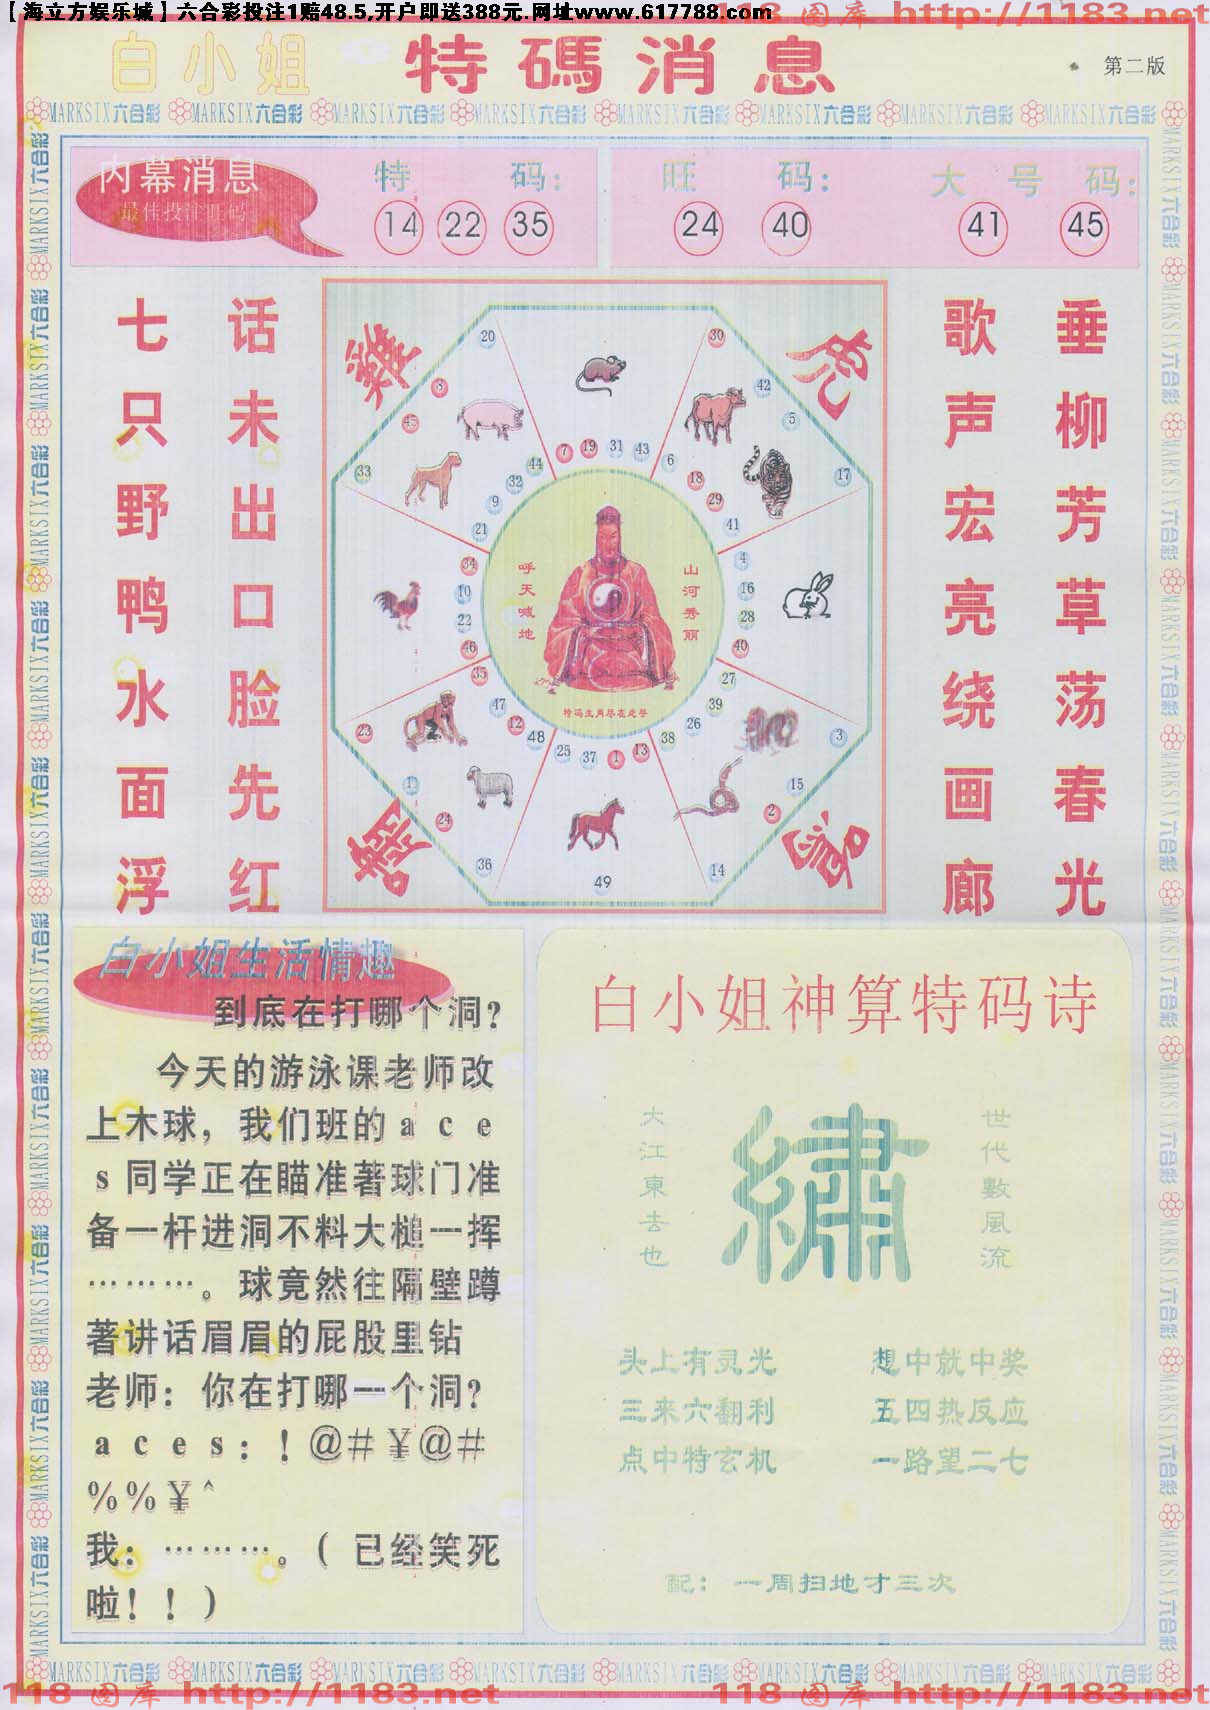 【海立方娱乐城】六合彩投注1赔48.5,开户即送388元.网址www.617788.com
118 图库 http://1183.net
白小姐 特碼消息
第二版
MARKSIX六合彩 MARKSIX六合彩 MARKSIX六合彩 MARKSIX六合彩 MARKSIX六合彩 MARKSIX六合彩 MARKSIX六合彩 MARKSIX六合彩
内幕消息
最佳投注旺码
特 码:
14 22 35
旺 码:
24 40
大 号 码:
41 45
七只野鸭水面浮
话未出口脸先红
歌声宏亮绕画廊
垂柳芳草荡春光
雞
虎
20
30
8
42
45
5
33
44
7
19
31
43
6
17
32
18
9
29
21
41
34
4
10
16
22
28
46
40
35
27
47
39
12
26
48
38
25
37
1
13
23
3
11
15
24
2
36
14
49
呼天喊地
山河秀丽
特码生肖尽在此乎
白小姐生活情趣
到底在打哪个洞?
今天的游泳课老师改
上木球，我们班的ace
s同学正在瞄准著球门准
备一杆进洞不料大槌一挥
………。球竟然往隔壁蹲
著讲话眉眉的屁股里钻
老师：你在打哪一个洞?
aces：！@#￥@#
%%￥^
我：………。（已经笑死
啦！！）
白小姐神算特码诗
大江東去也
繡
世代數風流
头上有灵光 想中就中奖
三来六翻利 五四热反应
点中特玄机 一路望二七
配：一周扫地才三次
MARKSIX六合彩 MARKSIX六合彩 MARKSIX六合彩 MARKSIX六合彩 MARKSIX六合彩 MARKSIX六合彩 MARKSIX六合彩 MARKSIX六合彩
118 图库 http://1183.net 118 图库 http://1183.net